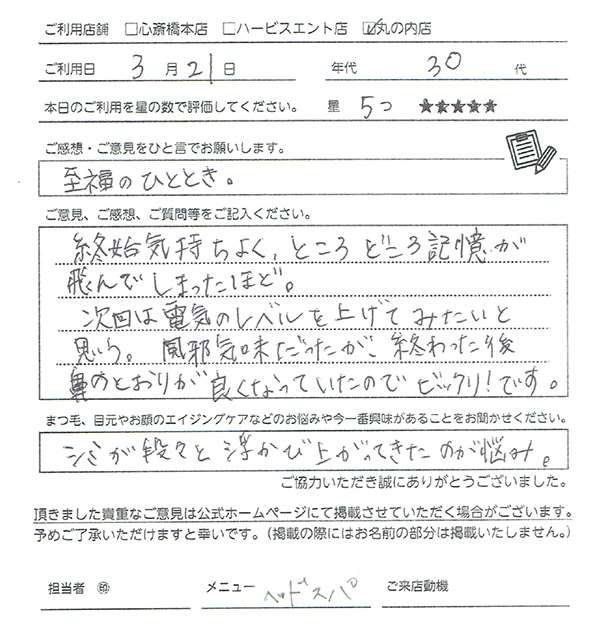 ご利用店舗 □心斎橋本店 □ハービスエント店 ☑丸の内店
ご利用日 3月21日 年代 30代
本日のご利用を星の数で評価してください。 星 5つ ★★★★★
ご感想・ご意見をひと言でお願いします。
至福のひととき。
ご意見、ご感想、ご質問等をご記入ください。
終始気持ちよく、ところどころ記憶が
飛んでしまったほど。
次回は電気のレベルを上げてみたいと
思う。風邪気味だったが、終わった後
鼻のとおりが良くなっていたのでビックリ!です。
まつ毛、目元やお顔のエイジングケアなどのお悩みや今一番興味があることをお聞かせください。
シミが段々と浮かび上がってきたのが悩み。
ご協力いただき誠にありがとうございました。
頂きました貴重なご意見は公式ホームページにて掲載させていただく場合がございます。
予めご了承いただけますと幸いです。(掲載の際にはお名前の部分は掲載いたしません。)
担当者 ㊞ メニュー ヘッドスパ ご来店動機